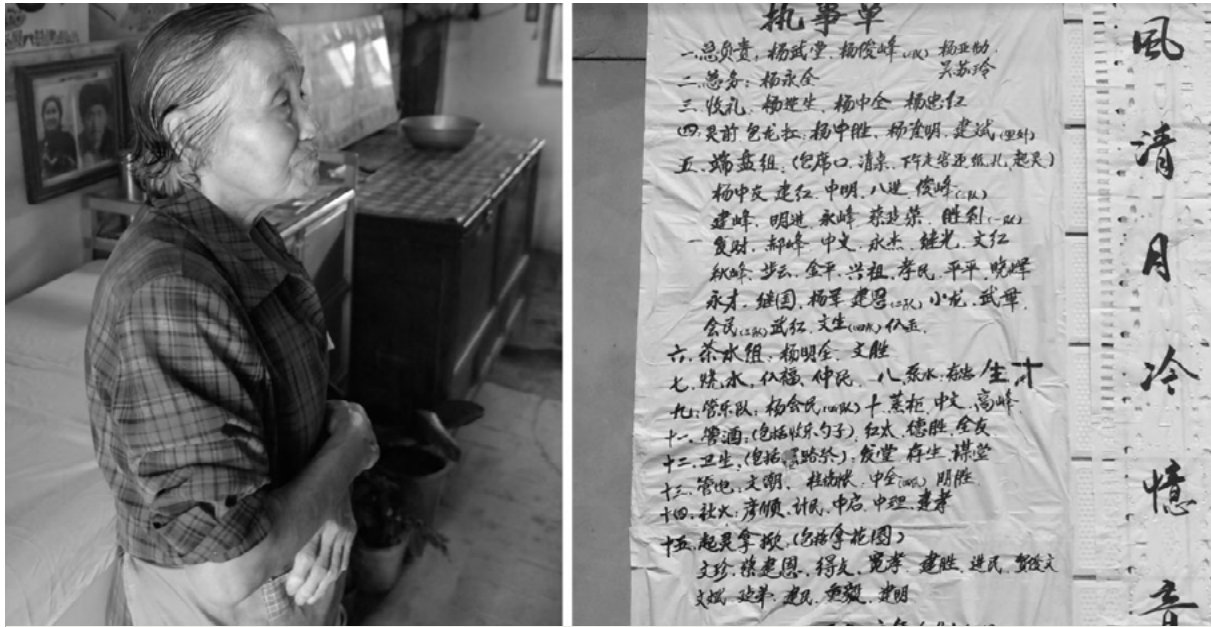 执事单
一、总负责：杨武堂、杨俊峰(二队) 杨亚勃
吴苏玲
二、总务：杨永全
三、收礼、杨进生、杨中全 杨忠红
四、灵前 包龙杠：杨中胜、杨 明、建斌
五、端盘组、(包席口、清桌、下午走客还纸礼、起灵)
杨中友 建红、中明、八进、俊峰(二队)
建峰、明进 永峰 蔡 荣、胜利(一队)
复财、郝峰 中文、永杰、继光、文红
秋峰、步云、全平、兴祖、孝民、平平、晓辉
永才、继国、杨军 建恩(二队) 小龙、武军、
会民(二队) 武红、文生(四队)
六、茶水组：杨明全、文胜
七、烧水、仪福、仲民、八、泵水：有忠 生才
九：管乐队：杨会民(四队) 十、蒸柜、中文、高峰
十一、管酒：(包括收乐勺子)、红太、德胜、全友
十二、卫生、(包括 路祭)：发堂 存生、谋堂
十三、管电：文潮、中全(四队) 明胜
十四、社火：彦顺、计民、中启、中理、建孝
十五、起灵拿锨、(包括拿花圈)
文珍、蔡建恩、得友、宽孝 建胜、进民、贺俊文
文斌 建民、重毅、建明
風清月冷憶音